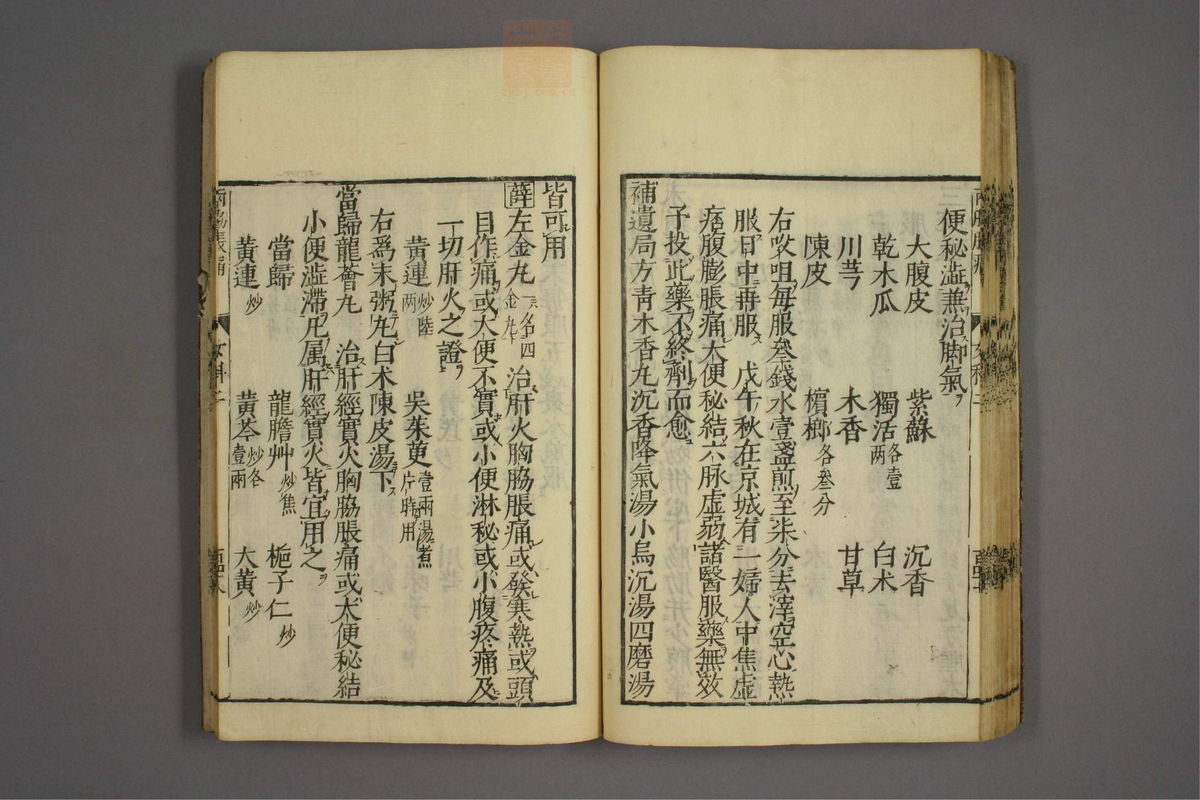 便秘澁兼治脚氣
大腹皮　紫蘇　沉香
乾木瓜　獨活各壹两　白术
川芎　木香　甘草
陳皮　檳榔各叁分
右㕮咀每服叁錢水壹盞煎至柒分去滓空心熱
服日中再服　戊午秋在京城有一婦人中焦虚
痞腹膨脹痛大便秘結六脉虚弱諸醫服藥無效
予投此藥不終劑而愈
補遺局方青木香丸沉香降氣湯小烏沉湯四磨湯
皆可用
薛左金丸一名四金丸　治肝火胸脇脹痛或發寒熱或頭
目作痛或大便不實或小便淋秘或小腹疼痛及
一切肝火之證
黄連炒陸两　吳茱萸壹兩湯煮片時用
右爲末粥丸白术陳皮湯下
當歸龍薈丸　治肝經實火胸脇脹痛或大便秘結
小便澁滯凡属肝經實火皆宜用之
當歸　龍膽艸炒焦　梔子仁炒
黄連炒　黄芩炒各壹兩　大黄炒
女科二